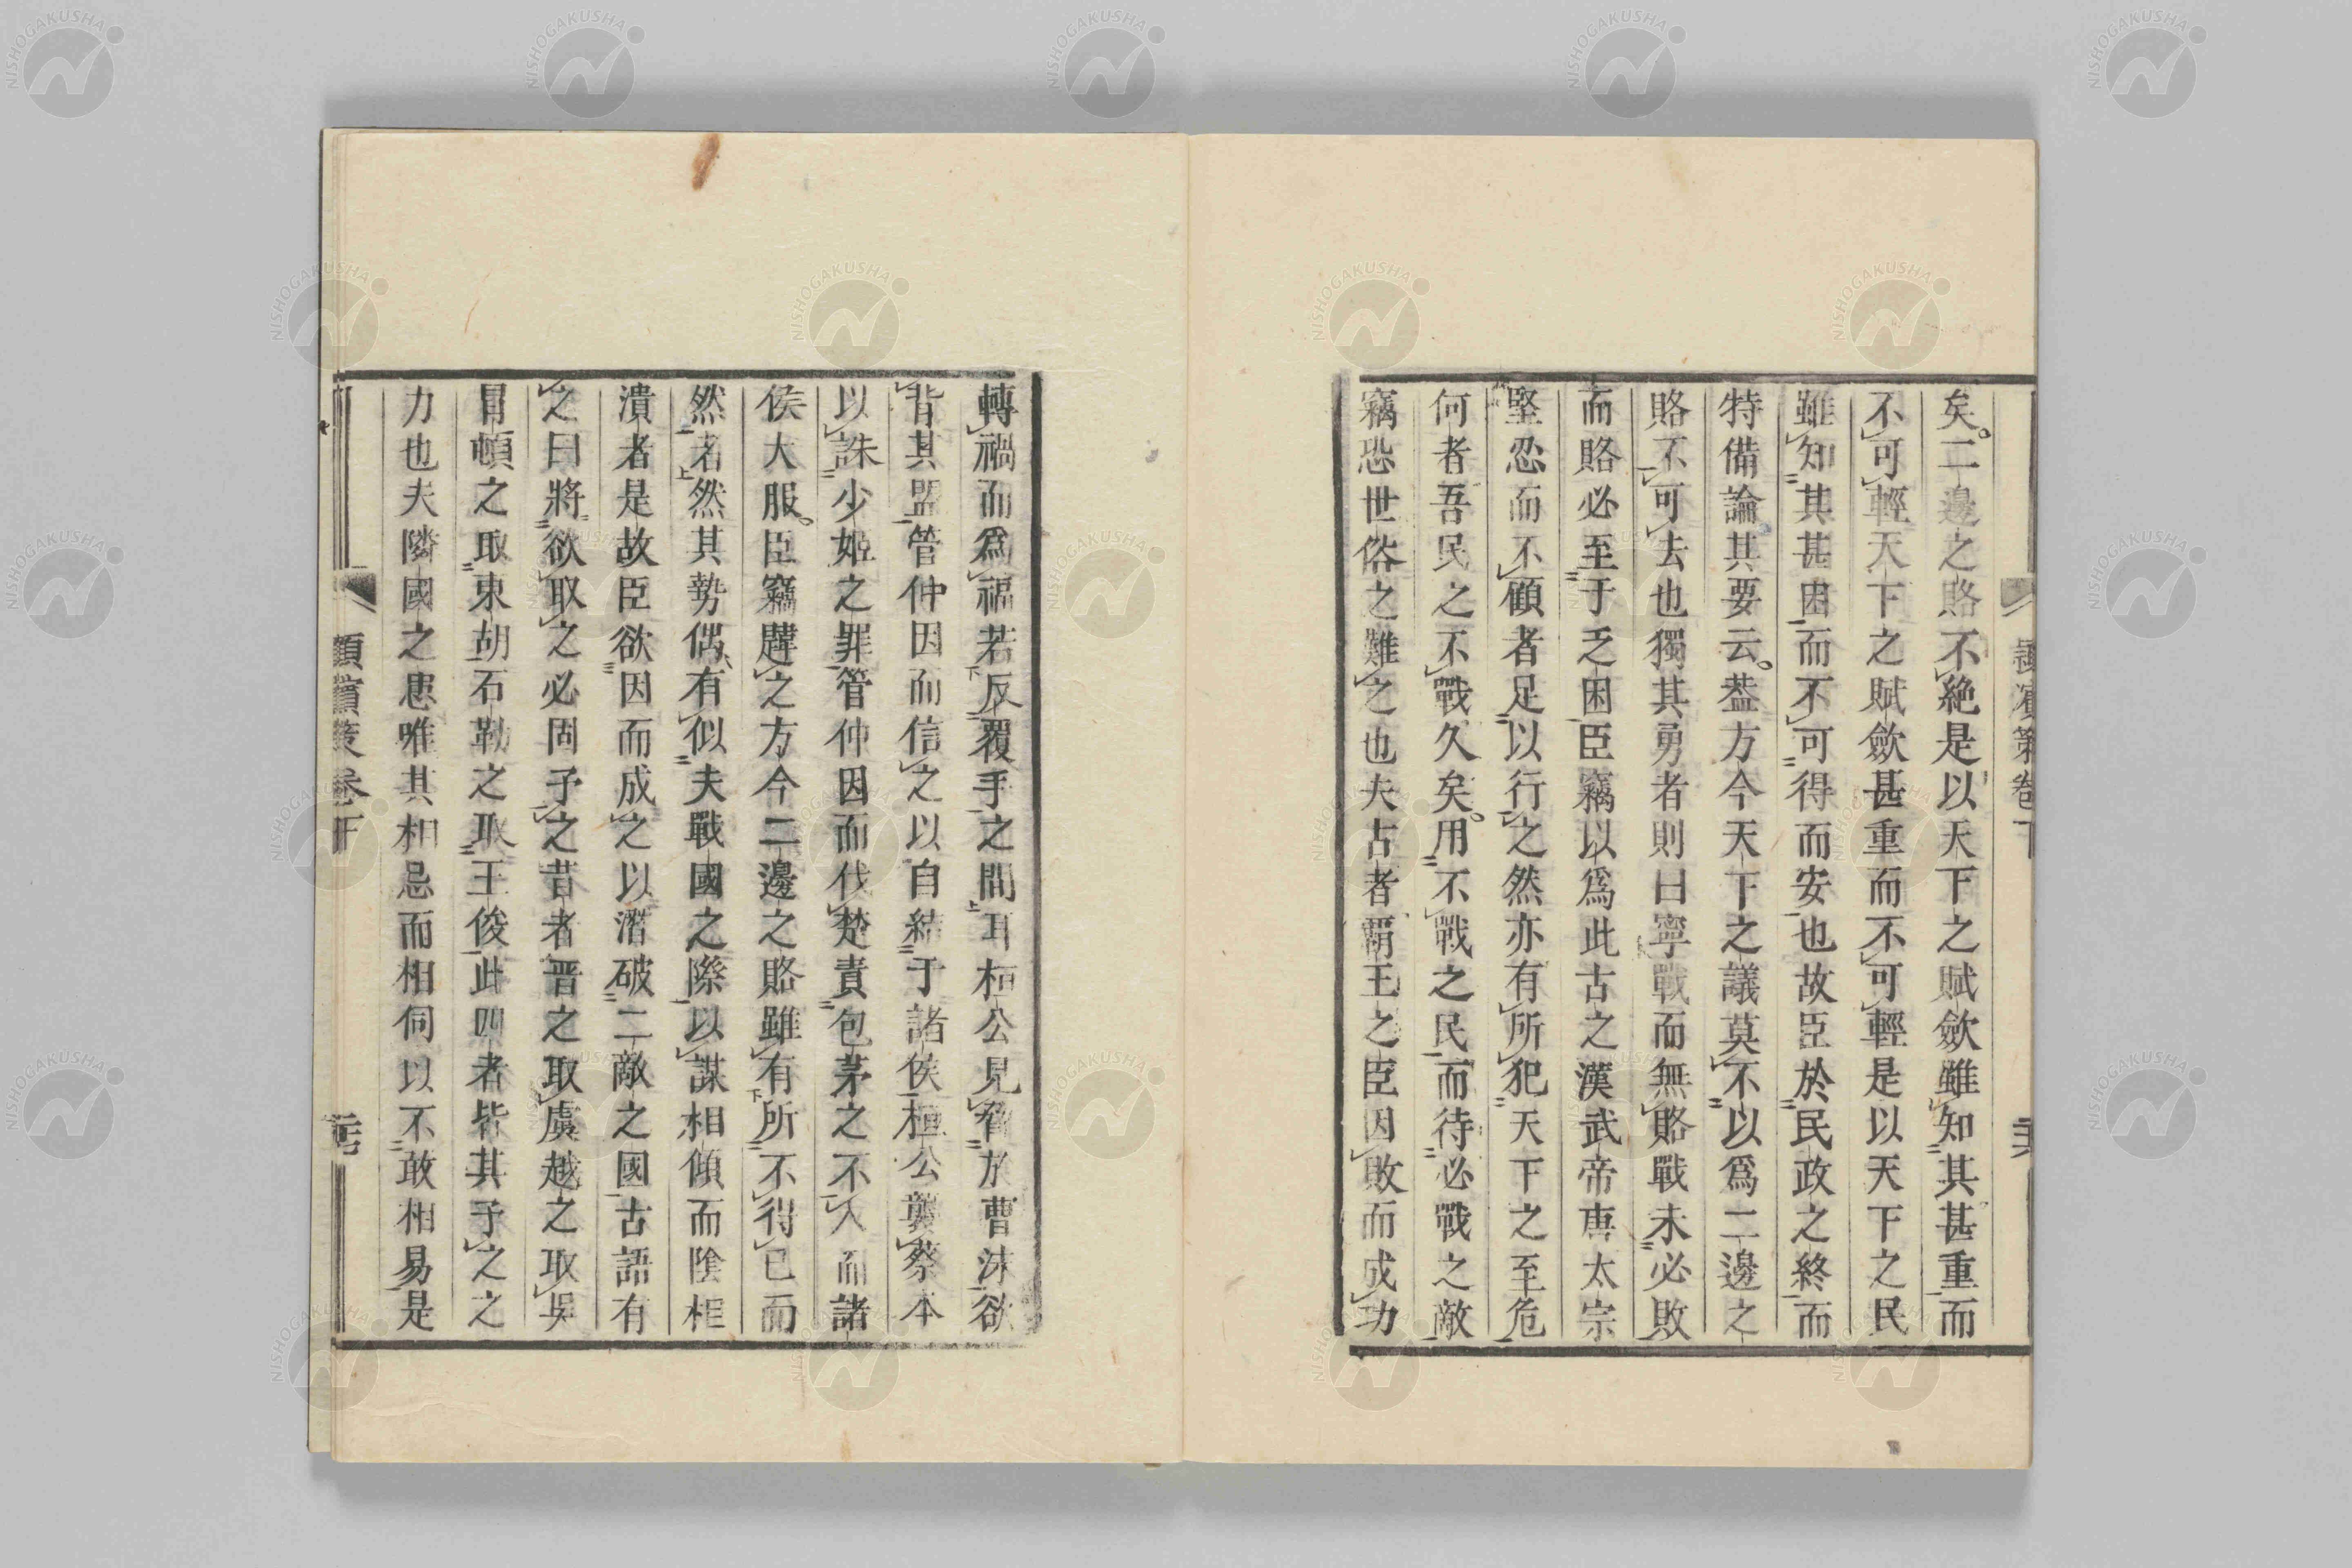 矣二邊之賂不絕是以天下之賦歛雖知其甚重而
不可輕天下之賦歛甚重而不可輕是以天下之民
雖知其甚困而不可得而安也故臣於民政之終而
特備論其要云葢方今天下之議莫不以爲二邊之
賂不可去也獨其勇者則曰寧戰而無賂戰未必敗
而賂必至于乏困臣竊以爲此古之漢武帝唐太宗
堅忍而不顧者足以行之然亦有所犯天下之至危
何者吾民之不戰久矣用不戰之民而待必戰之敵
竊恐世俗之難之也夫古者霸王之臣因敗而成功
轉禍而爲福若反覆手之間耳桓公見脅於曹沫欲
背其盟管仲因而信之以自結于諸侯桓公襲蔡本
以誅少姬之罪管仲因而伐楚責包茅之不入而諸
侯大服臣竊韙之方今二邊之賂雖有所不得已而
然者然其勢偶有似夫戰國之際以謀相傾而陰相
潰者是故臣欲因而成之以潛破二敵之國古語有
之曰將欲取之必固予之昔者晋之取虞越之取吳
冒頓之取東胡石勒之取王俊此四者皆其予之之
力也夫隣國之患唯其相忌而相伺以不敢相易是
頴濵策卷下
NISHOGAKUSHA